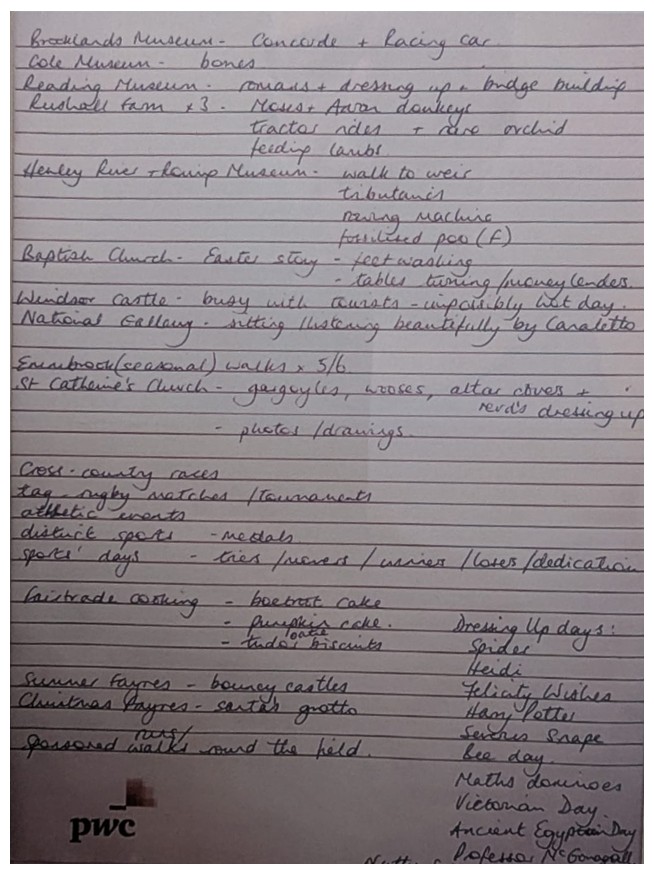 Brooklands Museum - Concorde + Racing car
Cole Museum - bones
Reading Museum - romans + dressing up + bridge building
Rushall farm x 3 - Moses + Arran donkeys
tractor rides + rare orchid
feeding lambs
Henley River + Rowing Museum - walk to weir
tributaries
rowing machine
fossilised poo (F)
Baptist Church - Easter story - feet washing
- tables turning / money lenders
Windsor Castle - busy with tourists - impossibly hot day.
National Gallery - sitting listening beautifully by Canaletto
Emmbrook (seasonal) walks x 5/6
St Catherine's Church - gargoyles, altar covers +
revd's dressing up
- photos / drawings.
Cross-country races
tag-rugby matches / tournaments
athletic events
district sports - medals
sports' days - tries / / winners / losers / dedication
fairtrade cooking - beetroot cake
- pumpkin cake.
- tudor oatie biscuits
Summer Fayres - bouncy castles
Christmas Fayres - santa's grotto
sponsored runs/ walks round the field.
Dressing Up days:
Spider
Heidi
Felicity Wishes
Harry Potter
Severus Snape
Bee day
Maths dominoes
Victorian Day
Ancient Egyptian Day
Professor McGonagall
pwc